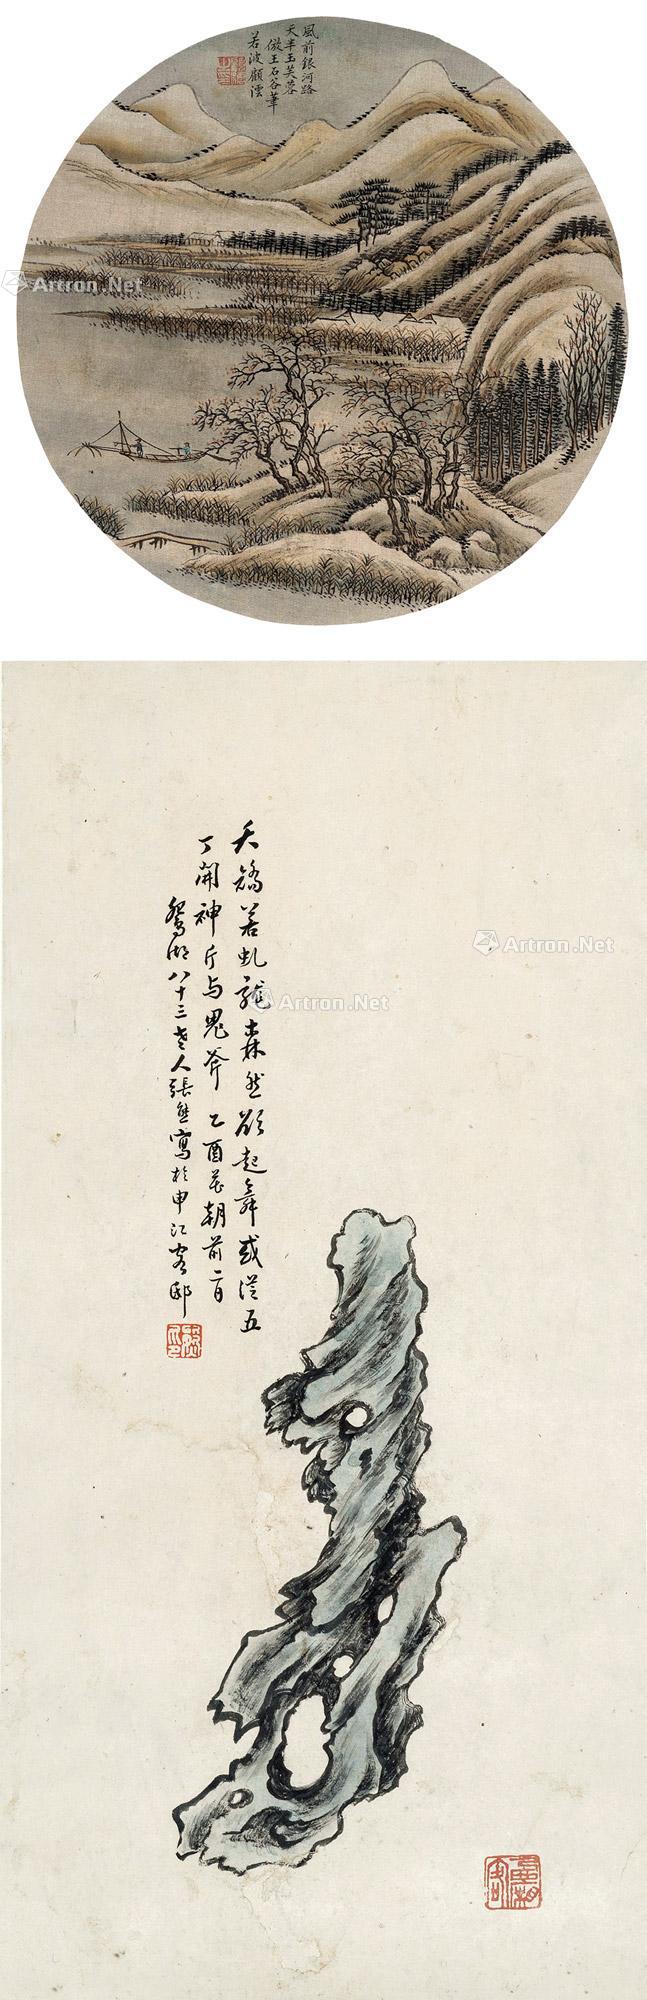 風前銀河路
天半玉芙蓉
倣王石谷筆
若波顧澐
Artron.Net
夭矯若虬龍森然欲起舞或從五
丁開神斤与鬼斧 乙酉花朝前二日
鴛湖八十三老人張熊寫於申江寄邸
Artron.Net
Artron.Net